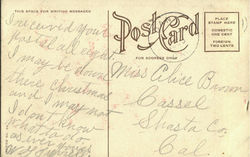 THIS SPACE FOR WRITING MESSAGES
Post Card
FOR ADDRESS ONLY
PLACE STAMP HERE
DOMESTIC ONE CENT
FOREIGN TWO CENTS
I received your
postal all right
I may be down
there Christmas
and I may not
I don't know
what
Miss Alice Brown
Cassel
Shasta Co.
Cal.